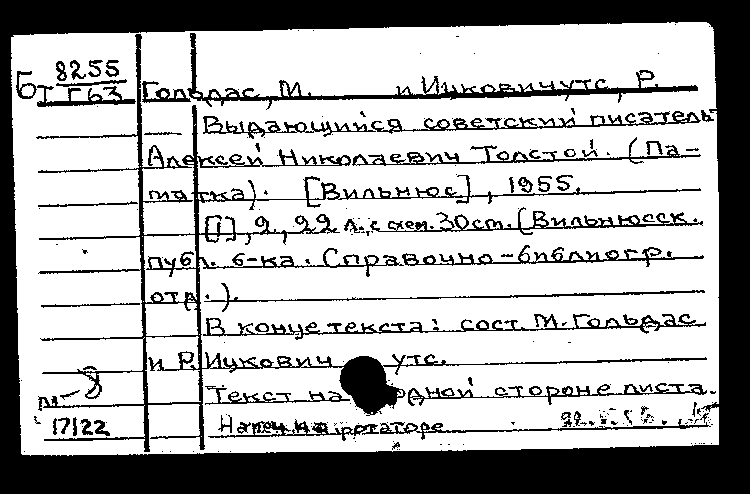 Бт 8255
Г63
Гольдас, М. и Ицковичутс, Р.
Выдающийся советский писатель
Алексей Николаевич Толстой. (Па-
мятка). [Вильнюс], 1955.
[1], 2, 22 л. с схем. 30 ст. (Вильнюсск.
публ. б-ка. Справочно-библиогр.
отд.).
В конце текста: сост. М. Гольдас
и Р. Ицкович утс.
Текст на одной стороне листа.
Напеч. на ротаторе
м-8
17122